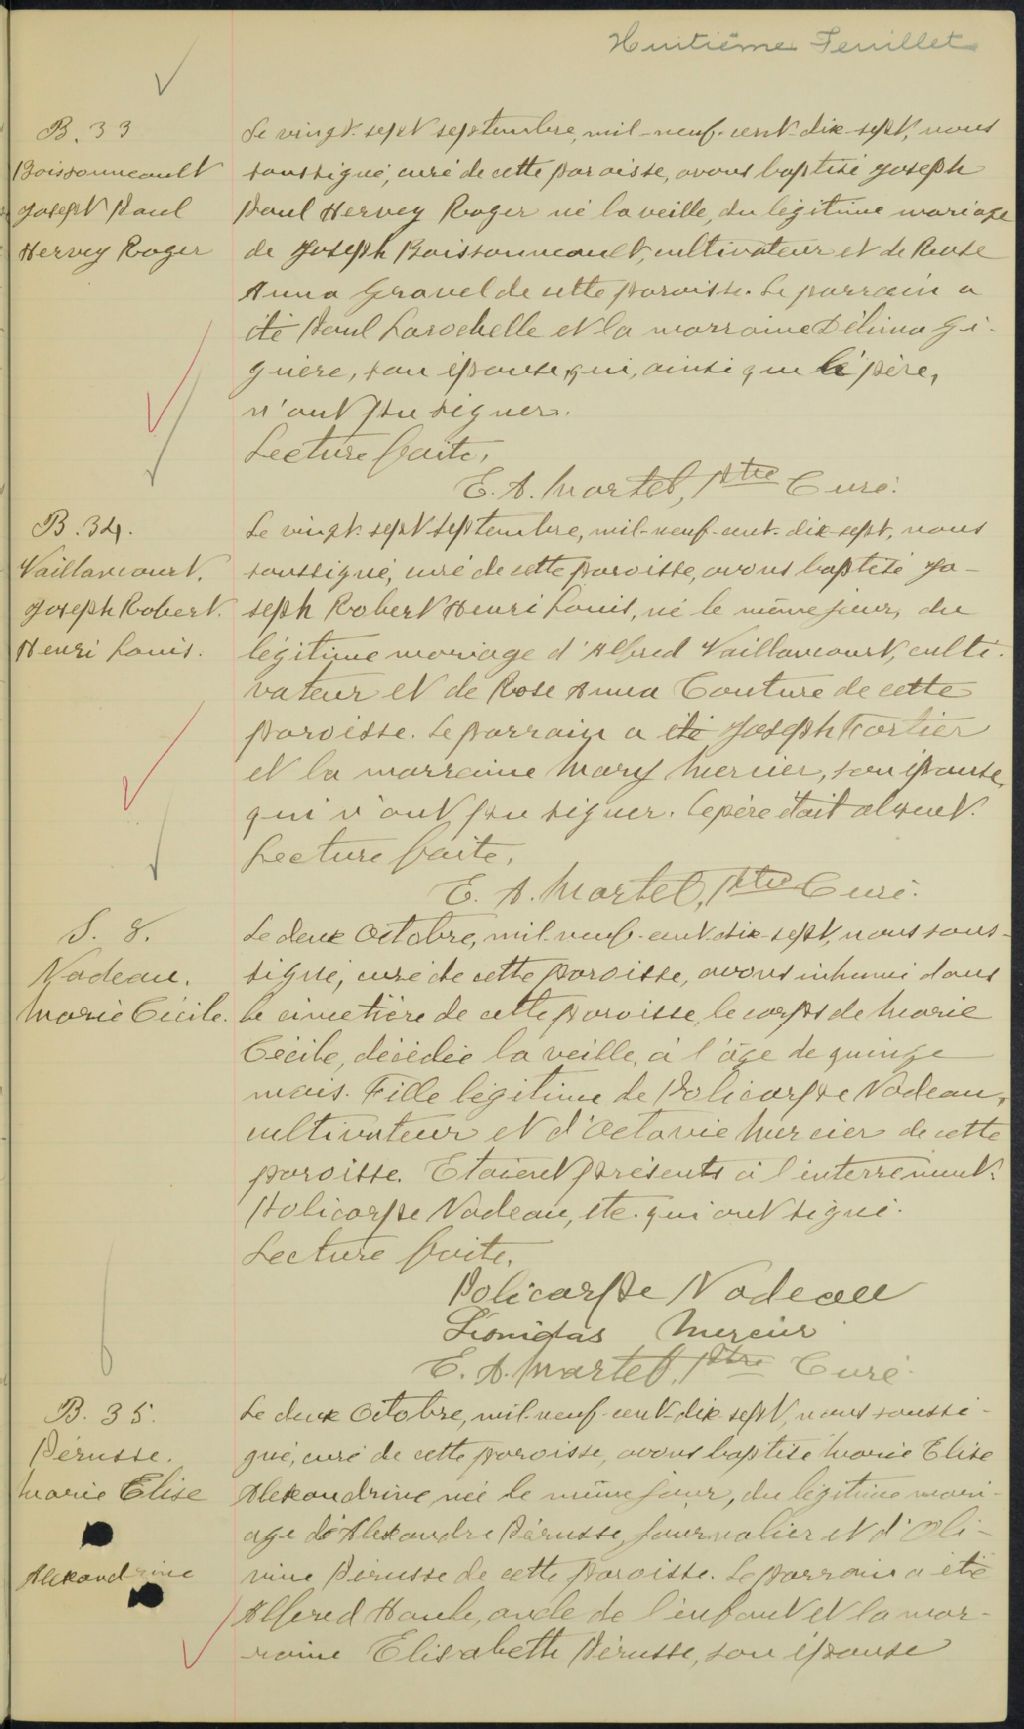 Huitième Feuillet
B. 33
Boissonneault
Joseph Paul
Hervey Roger
Le vingt-sept septembre, mil-neuf-cent-dix-sept, nous
soussigné, curé de cette paroisse, avons baptisé Joseph
Paul Hervey Roger né la veille, du légitime mariage
de Joseph Boissonneault, cultivateur et de Rose
Anna Gravel de cette paroisse. Le parrain a
été Paul Larochelle et la marraine Délima Gi-
guère, son épouse, qui, ainsi que le père,
n'ont pu signer.
Lecture faite,
E. A. Martel, Ptre Curé.
B. 34.
Vaillancourt.
Joseph Robert.
Henri Louis.
Le vingt-sept septembre, mil-neuf-cent-dix-sept, nous
soussigné, curé de cette paroisse, avons baptisé Jo-
seph Robert Henri Louis, né le même jour, du
légitime mariage d'Alfred Vaillancourt, culti-
vateur et de Rose Anna Couture de cette
paroisse. Le parrain a été Joseph Fortier
et la marraine Mary Mercier, son épouse,
qui n'ont pu signer. Le père était absent.
Lecture faite,
E. A. Martel, Ptre Curé.
S. 8.
Nadeau.
Marie Cécile.
Le deux Octobre, mil-neuf-cent-dix-sept, nous sous-
signé, curé de cette paroisse, avons inhumé dans
le cimetière de cette paroisse, le corps de Marie
Cécile, décédée la veille, à l'âge de quinze
mois. Fille légitime de Policarpe Nadeau,
cultivateur et d'Octavie Mercier de cette
paroisse. Etaient présents à l'enterrement:
Policarpe Nadeau, etc. qui ont signé.
Lecture faite.
Policarpe Nadeau
Léonidas Mercier
E. A. Martel, Ptre Curé.
B. 35.
Pérusse.
Marie Elise
Alexandrine
Le deux Octobre, mil-neuf-cent-dix-sept, nous soussi-
gné, curé de cette paroisse, avons baptisé Marie Elise
Alexandrine, née le même jour, du légitime mari-
age d'Alexandre Pérusse, journalier et d'Oli-
vine Pérusse de cette paroisse. Le parrain a été
Alfred Houle, oncle de l'enfant et la mar-
raine Elisabeth Pérusse, son épouse